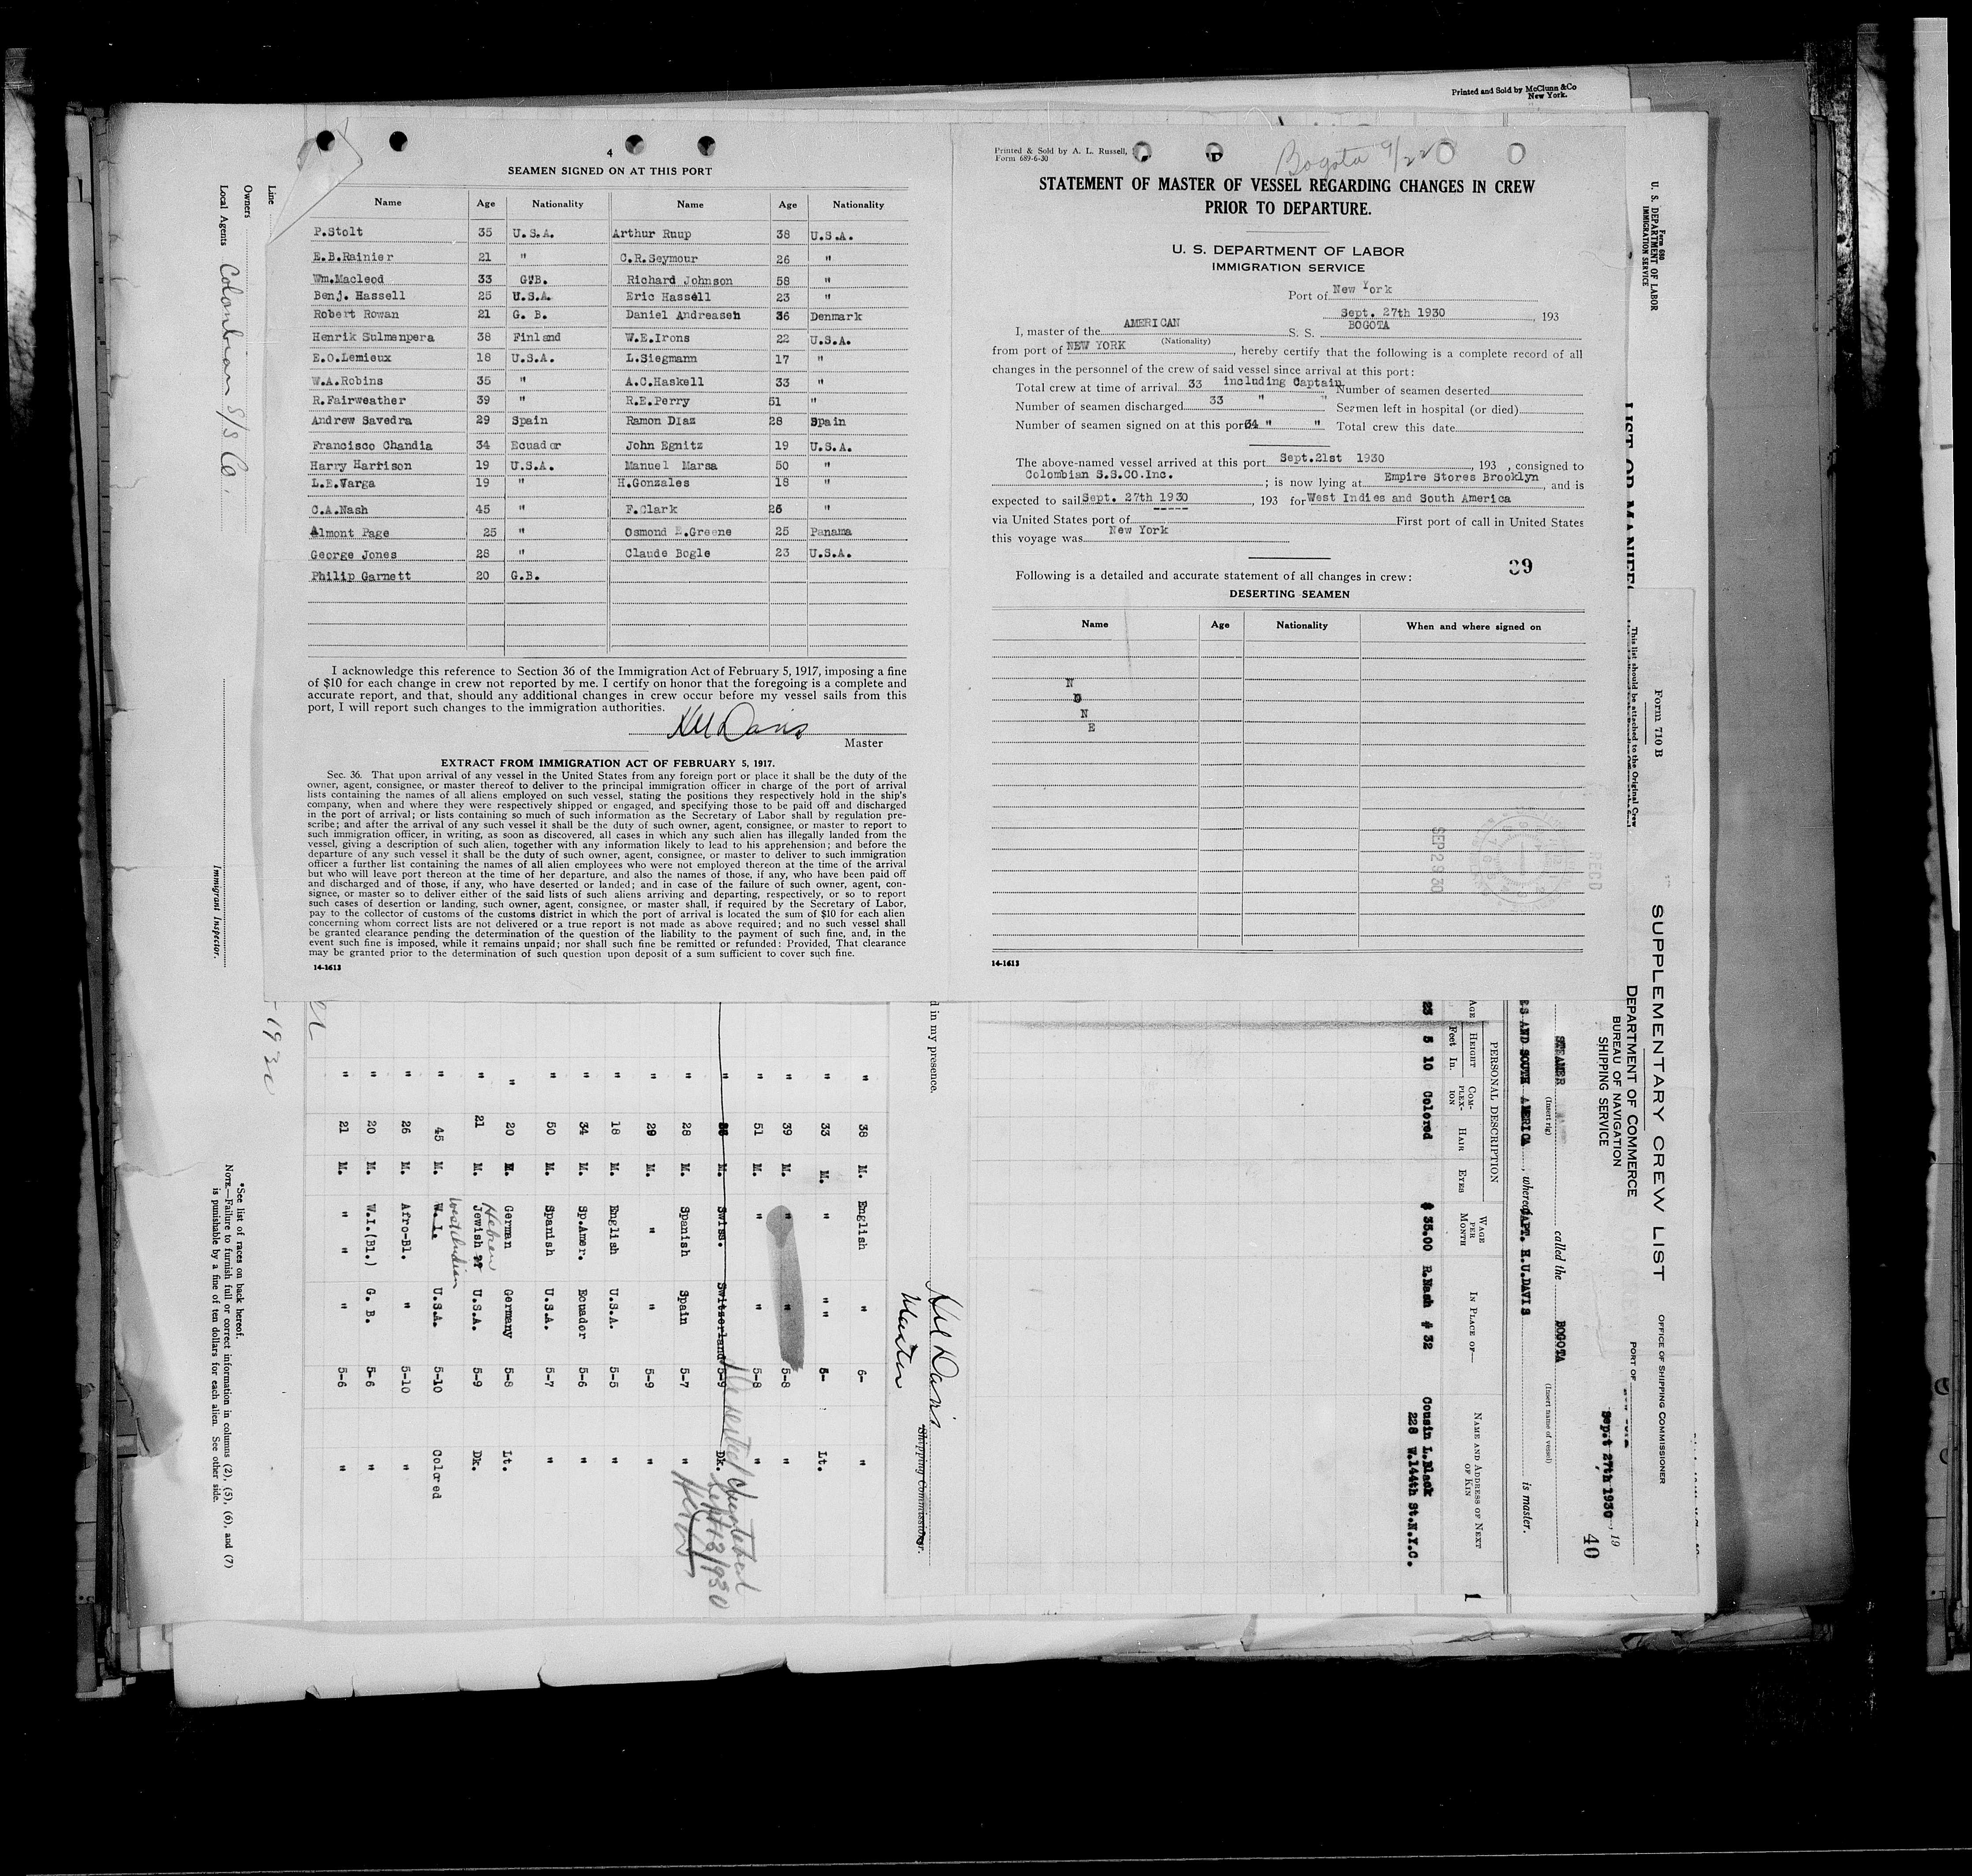 Printed and Sold by McClunn & Co
New York.
4
SEAMEN SIGNED ON AT THIS PORT
Name Age Nationality Name Age Nationality
P.Stolt 35 U.S.A. Arthur Ruup 38 U.S.A.
E.B.Rainier 21 " C.R.Seymour 26 "
Wm.Macleod 33 G.B. Richard Johnson 58 "
Benj. Hassell 25 U.S.A. Eric Hassell 23 "
Robert Rowan 21 G. B. Daniel Andreasen 36 Denmark
Henrik Sulmenpera 38 Finland W.E.Irons 22 U.S.A.
E.O.Lemieux 18 U.S.A. L.Siegmann 17 "
W.A.Robins 35 " A.C.Haskell 33 "
R.Fairweather 39 " R.E.Perry 51 "
Andrew Savedra 29 Spain Ramon Diaz 28 Spain
Francisco Chandia 34 Ecuador John Egnitz 19 U.S.A.
Harry Harrison 19 U.S.A. Manuel Marsa 50 "
L.E.Varga 19 " H.Gonzales 18 "
C.A.Nash 45 " F.Clark 26 "
Almont Page 25 " Osmond E.Greene 25 Panama
George Jones 28 " Claude Bogle 23 U.S.A.
Philip Garnett 20 G.B.
I acknowledge this reference to Section 36 of the Immigration Act of February 5, 1917, imposing a fine
of $10 for each change in crew not reported by me. I certify on honor that the foregoing is a complete and
accurate report, and that, should any additional changes in crew occur before my vessel sails from this
port, I will report such changes to the immigration authorities.
HU Davis
Master
EXTRACT FROM IMMIGRATION ACT OF FEBRUARY 5, 1917.
Sec. 36. That upon arrival of any vessel in the United States from any foreign port or place it shall be the duty of the
owner, agent, consignee, or master thereof to deliver to the principal immigration officer in charge of the port of arrival
lists containing the names of all aliens employed on such vessel, stating the positions they respectively hold in the ship's
company, when and where they were respectively shipped or engaged, and specifying those to be paid off and discharged
in the port of arrival; or lists containing so much of such information as the Secretary of Labor shall by regulation pre-
scribe; and after the arrival of any such vessel it shall be the duty of such owner, agent, consignee, or master to report to
such immigration officer, in writing, as soon as discovered, all cases in which any such alien has illegally landed from the
vessel, giving a description of such alien, together with any information likely to lead to his apprehension; and before the
departure of any such vessel it shall be the duty of such owner, agent, consignee, or master to deliver to such immigration
officer a further list containing the names of all alien employees who were not employed thereon at the time of the arrival
but who will leave port thereon at the time of her departure, and also the names of those, if any, who have been paid off
and discharged and of those, if any, who have deserted or landed; and in case of the failure of such owner, agent, con-
signee, or master so to deliver either of the said lists of such aliens arriving and departing, respectively, or so to report
such cases of desertion or landing, such owner, agent, consignee, or master shall, if required by the Secretary of Labor,
pay to the collector of customs of the customs district in which the port of arrival is located the sum of $10 for each alien
concerning whom correct lists are not delivered or a true report is not made as above required; and no such vessel shall
be granted clearance pending the determination of the question of the liability to the payment of such fine, and, in the
event such fine is imposed, while it remains unpaid; nor shall such fine be remitted or refunded: Provided, That clearance
may be granted prior to the determination of such question upon deposit of a sum sufficient to cover such fine.
14-1613
Printed & Sold by A. L. Russell,
Form 689-6-30
Bogota 9/22
STATEMENT OF MASTER OF VESSEL REGARDING CHANGES IN CREW
PRIOR TO DEPARTURE.
U. S. DEPARTMENT OF LABOR
IMMIGRATION SERVICE
Port of New York
Sept. 27th 1930, 193
I, master of the AMERICAN S. S. BOGOTA
(Nationality)
from port of NEW YORK, hereby certify that the following is a complete record of all
changes in the personnel of the crew of said vessel since arrival at this port:
Total crew at time of arrival 33 including Captain Number of seamen deserted
Number of seamen discharged 33 " " Seamen left in hospital (or died)
Number of seamen signed on at this port 34 " " Total crew this date
The above-named vessel arrived at this port Sept.21st 1930, 193 , consigned to
Colombian S.S.CO.Inc. ; is now lying at Empire Stores Brooklyn, and is
expected to sail Sept. 27th 1930, 193 for West Indies and South America
via United States port of First port of call in United States
this voyage was New York
39
Following is a detailed and accurate statement of all changes in crew:
DESERTING SEAMEN
Name Age Nationality When and where signed on
N
O
N
E
SEP 29 30
RECD
14-1613
Line
Owners
Local Agents Colombian S/S Co.
Immigrant Inspector.
*See list of races on back hereof.
NOTE.—Failure to furnish full or correct information in columns (2), (5), (6), and (7)
is punishable by a fine of ten dollars for each alien. See other side.
-1930
" 38 M. English " 6- "
" 33 M. " " " 5- Lt.
" 39 M. " " 5-8 "
" 51 M. " " 5-8 "
" 36 M. Swiss. Switzerland 5-9 Dk.
Deserted Sept 13/1930
" 28 M. Spanish Spain 5-7 "
" 29 M. " " 5-9 "
" 18 M. English U.S.A. 5-5 "
" 34 M. Sp.Amer. Ecuador 5-6 "
" 50 M. Spanish U.S.A. 5-7 "
" 20 M. German Germany 5-8 Lt.
Hebrew
" 21 M. Jewish U.S.A. 5-9 Dk.
West Indian
" 45 M. W.I. U.S.A. 5-10 Colored
" 26 M. Afro-Bl. " 5-10 "
" 20 M. W.I.(Bl.) G. B. 5-6 "
" 21 M. " " " 5-6 "
d in my presence.
HU Davis
Master
Shipping Commissioner.
Form 689
U. S. DEPARTMENT OF LABOR
IMMIGRATION SERVICE
This list should be attached to the Original Crew
Form 710 B
SUPPLEMENTARY CREW LIST
DEPARTMENT OF COMMERCE
BUREAU OF NAVIGATION
SHIPPING SERVICE
OFFICE OF SHIPPING COMMISSIONER
PORT OF
Sept 27th 1930, 19
40
STEAMER called the BOGOTA
(Insert rig) (Insert name of vessel)
ES AND SOUTH AMERICA, whereof CAPT. H.U.DAVIS is master.
PERSONAL DESCRIPTION
AGE HEIGHT Feet In. COM-PLEX-ION HAIR EYES WAGE PER MONTH IN PLACE OF— NAME AND ADDRESS OF NEXT OF KIN
25 5 10 Colored $ 35.00 R.Nash # 32 Cousin L.Black
228 W.144th St.N.Y.C.
1